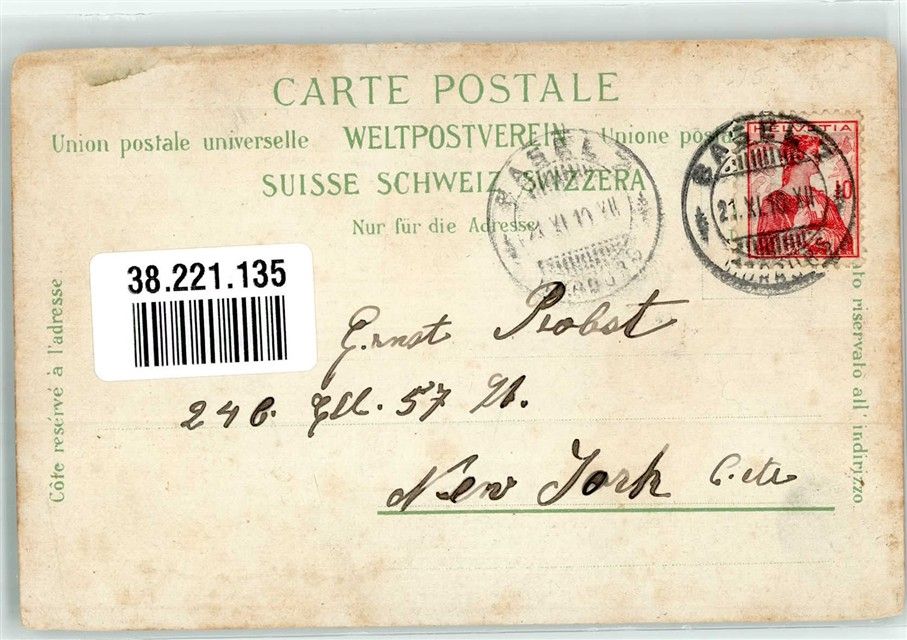 CARTE POSTALE
Union postale universelle WELTPOSTVEREIN Unione posta
SUISSE SCHWEIZ SVIZZERA
Nur für die Adresse
Côte réservé à l'adresse
lato riservato all' indirizzo
HELVETIA
10
BASEL
21.XI.10.XII
BASEL
21.XI.10.XII
38.221.135
Ernst Probst
246. 57 St.
New York